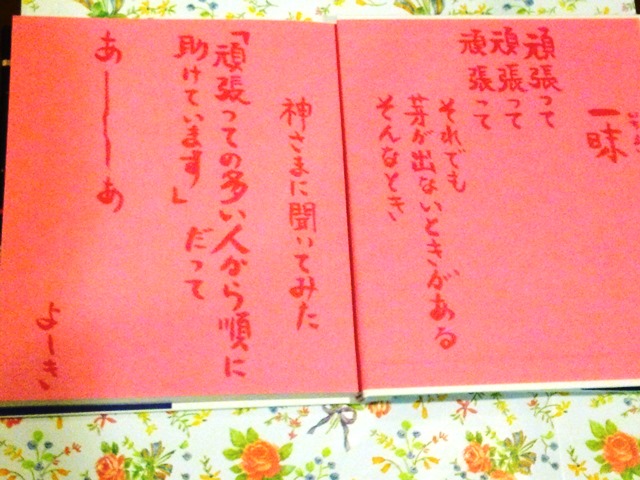 一昧
頑張って
頑張って
頑張って
それでも
芽が出ないときがある
そんなとき
神さまに聞いてみた
「頑張っての多い人から順に
助けています」だって
あーーあ
よーき